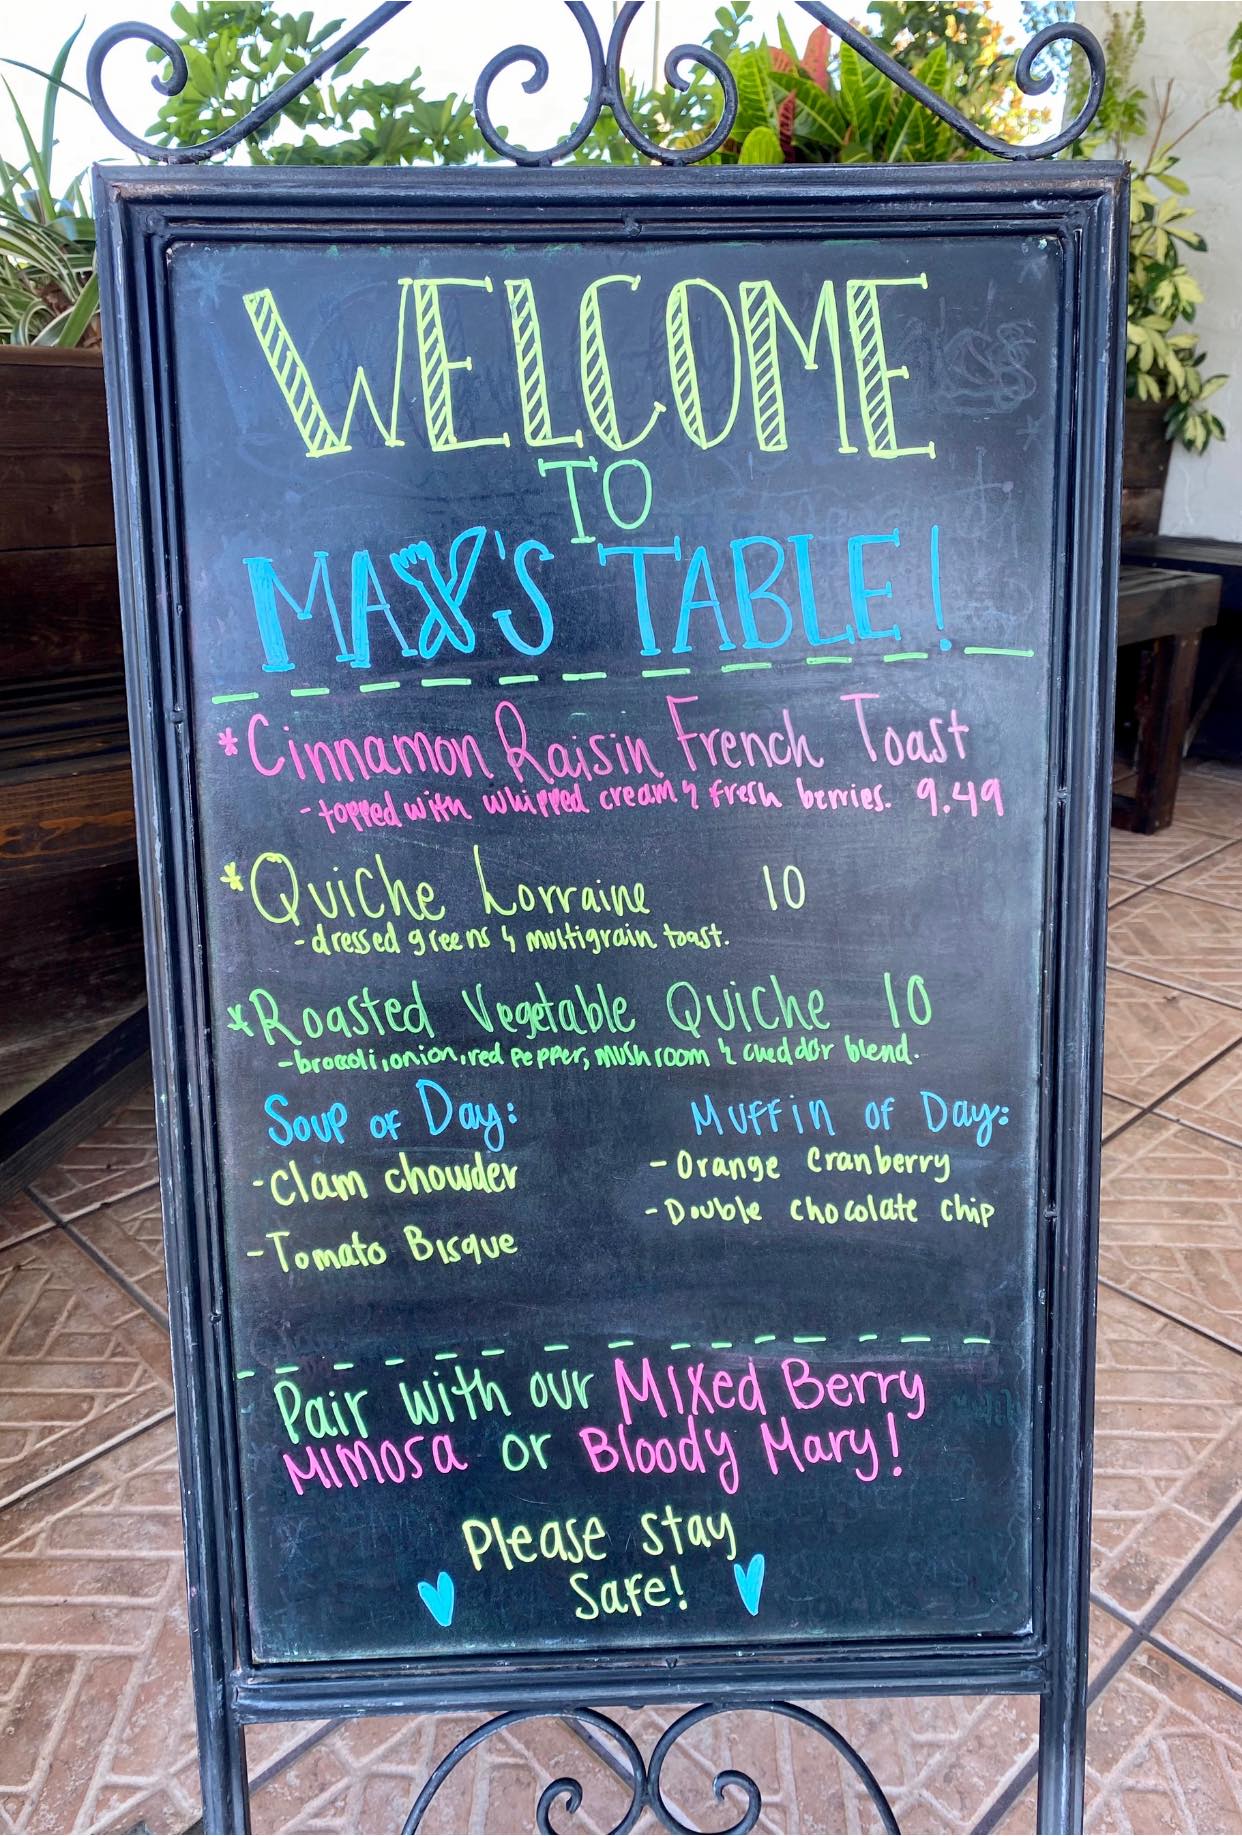 WELCOME
TO
MAX'S TABLE!
*Cinnamon Raisin French Toast
-topped with whipped cream & fresh berries. 9.49
*Quiche Lorraine 10
-dressed greens & multigrain toast.
*Roasted Vegetable Quiche 10
-broccoli, onion, red pepper, mushroom & cheddar blend.
Soup of Day:
-Clam chowder
-Tomato Bisque
Muffin of Day:
-Orange Cranberry
-Double chocolate chip
Pair with our Mixed Berry
Mimosa or Bloody Mary!
Please stay
Safe!